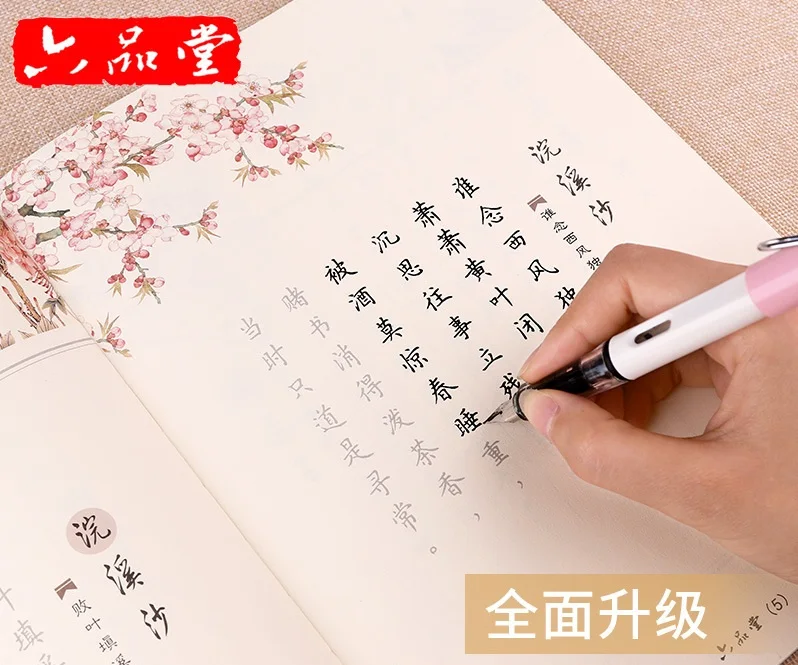 六品堂
浣溪沙
谁念西风独
谁念西风独
萧萧黄叶闭
沉思往事立残
被酒莫惊春睡重，
赌书消得泼茶香，
当时只道是寻常。
浣溪沙
败叶填溪
填
全面升级
六品堂 (5)